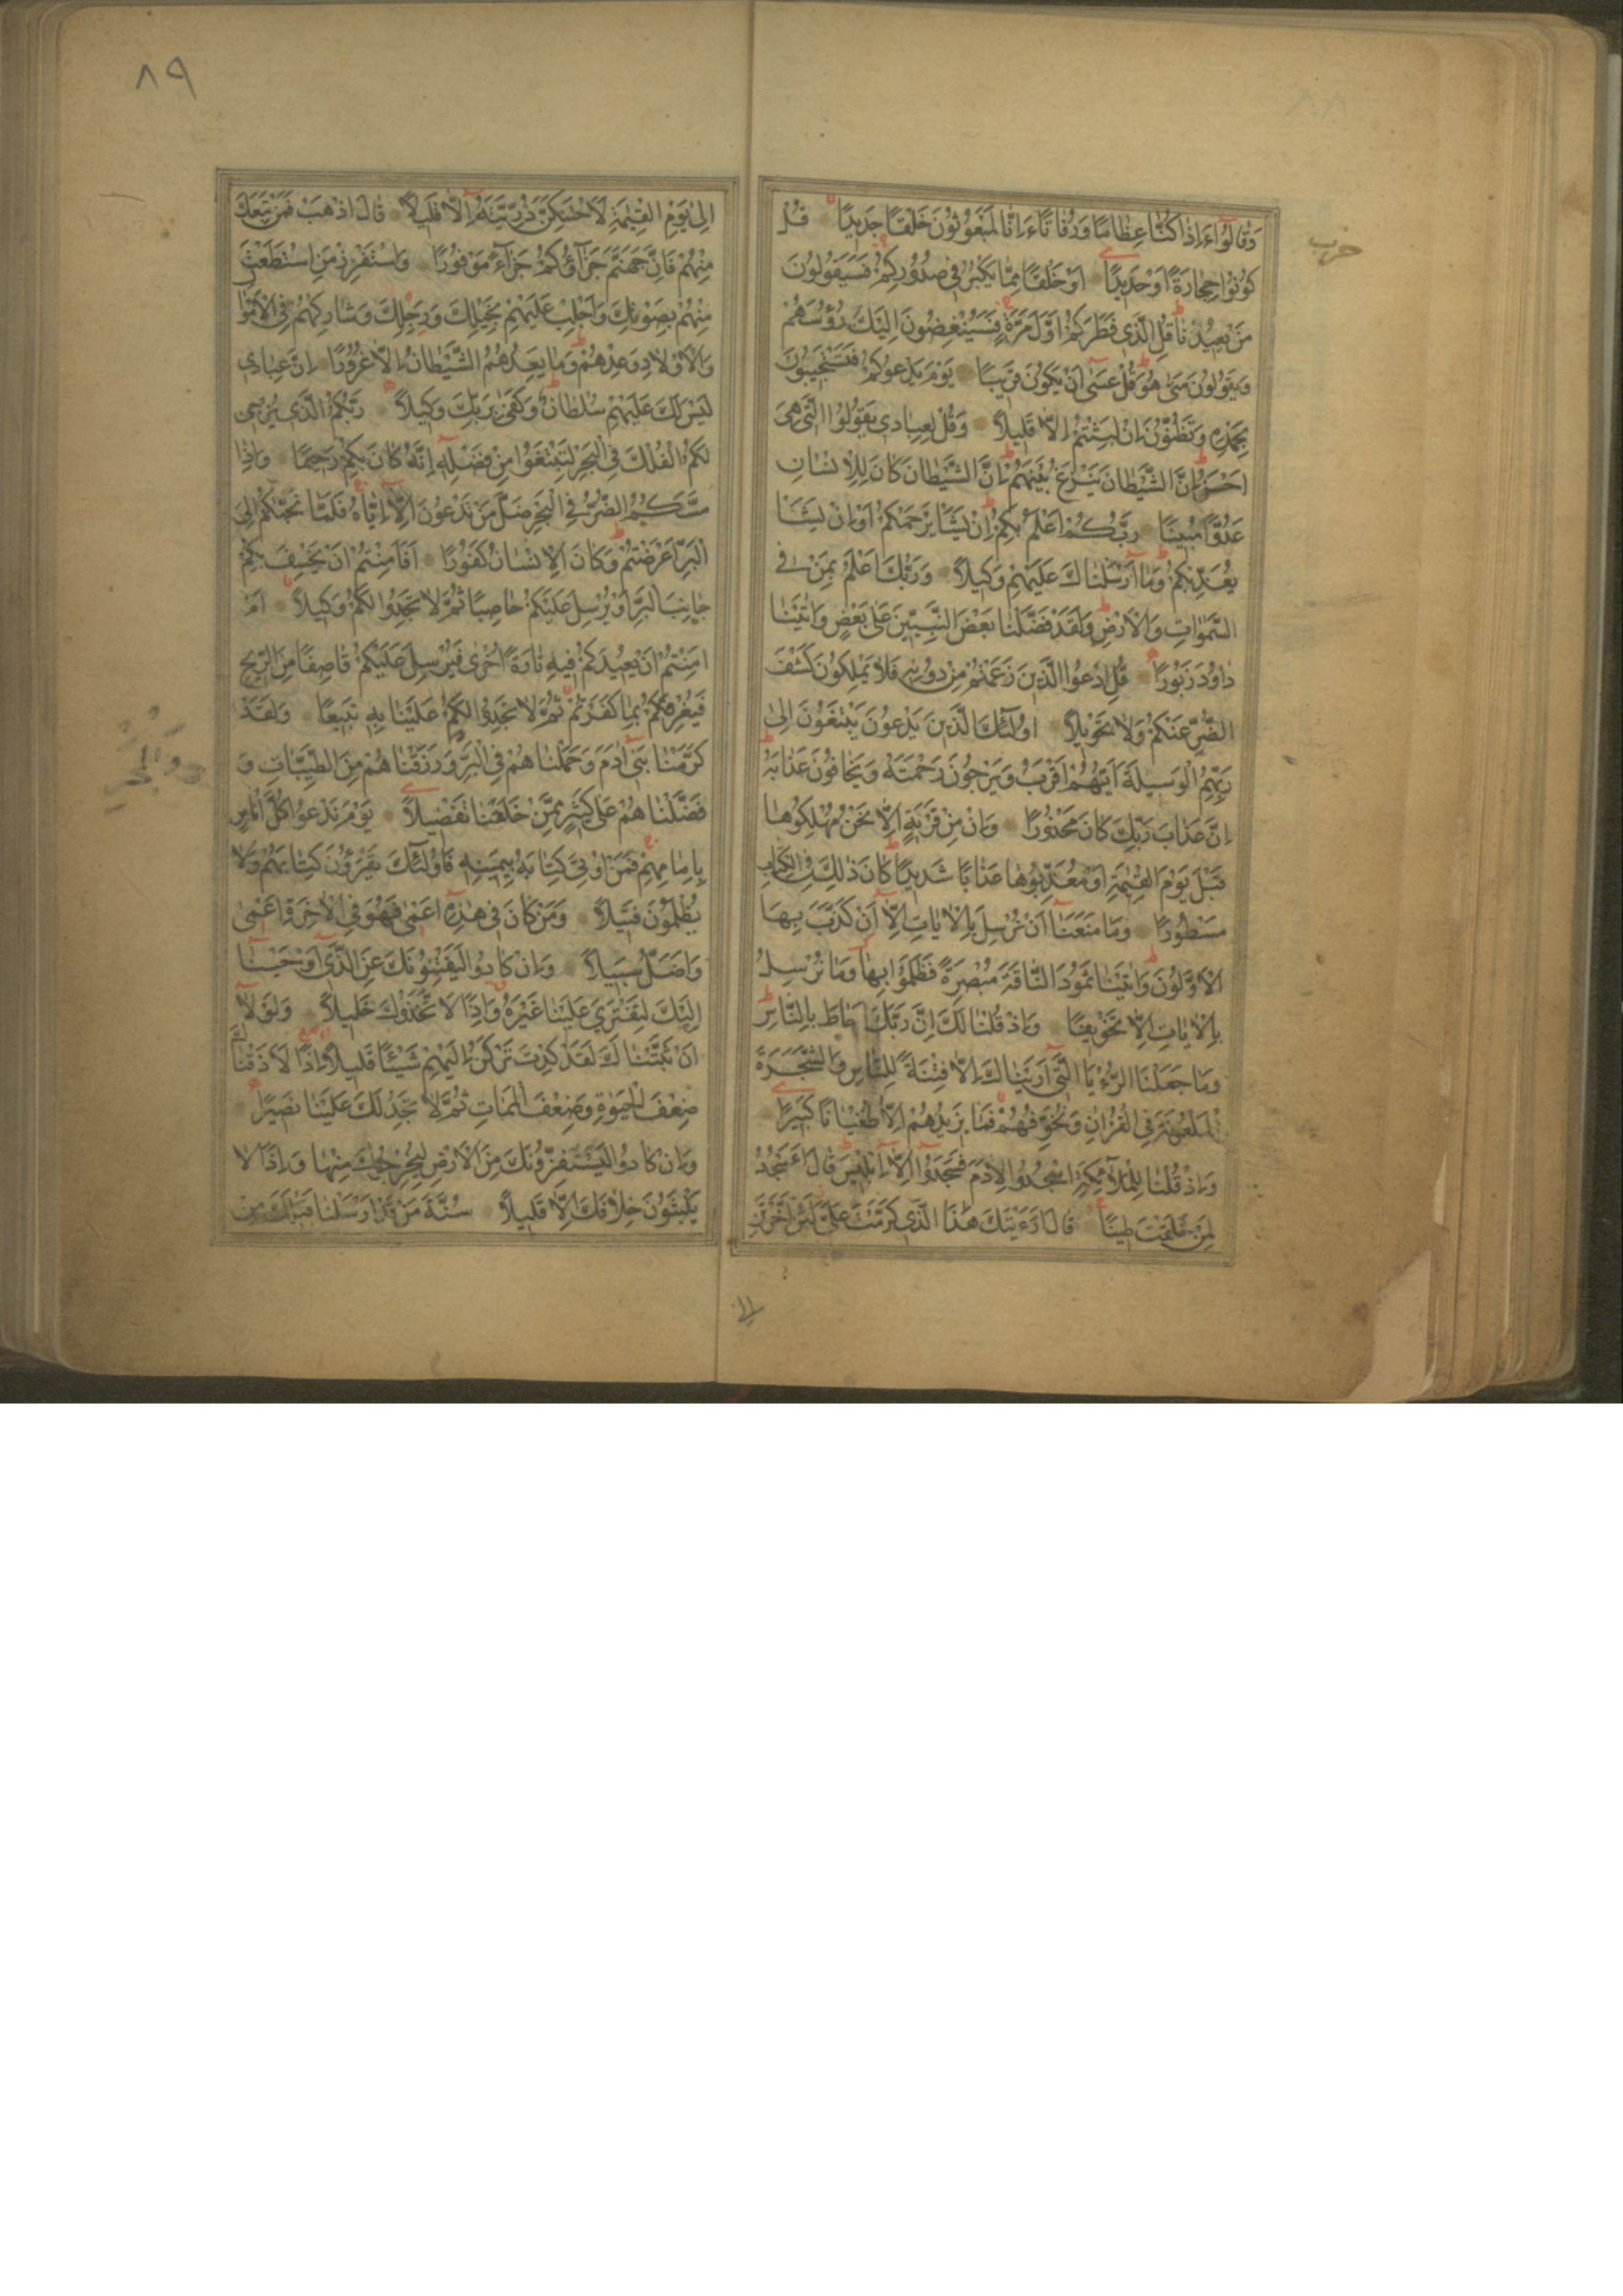 وَقَالُوٓا ءَاِذَا كُنَّا عِظَامًا وَرُفَاتًا ءَاِنَّا لَمَبْعُوثُونَ خَلْقًا جَدِيدًا قُلْ
حزب
كُونُوا حِجَارَةً اَوْ حَدِيدًا اَوْ خَلْقًا مِمَّا يَكْبُرُ فِي صُدُورِكُمْ فَسَيَقُولُونَ
مَنْ يُعِيدُنَا قُلِ الَّذِي فَطَرَكُمْ اَوَّلَ مَرَّةٍ فَسَيُنْغِضُونَ اِلَيْكَ رُؤُسَهُمْ
وَيَقُولُونَ مَتٰى هُوَ قُلْ عَسٰٓى اَنْ يَكُونَ قَرِيبًا يَوْمَ يَدْعُوكُمْ فَتَسْتَجِيبُونَ
بِحَمْدِهِ وَتَظُنُّونَ اِنْ لَبِثْتُمْ اِلَّا قَلِيلًا وَقُلْ لِعِبَادِي يَقُولُوا الَّتِي هِيَ
اَحْسَنُ اِنَّ الشَّيْطَانَ يَنْزَغُ بَيْنَهُمْ اِنَّ الشَّيْطَانَ كَانَ لِلْاِنْسَانِ
عَدُوًّا مُبِينًا رَبُّكُمْ اَعْلَمُ بِكُمْ اِنْ يَشَاْ يَرْحَمْكُمْ اَوْ اِنْ يَشَاْ
يُعَذِّبْكُمْ وَمَٓا اَرْسَلْنَاكَ عَلَيْهِمْ وَكِيلًا وَرَبُّكَ اَعْلَمُ بِمَنْ فِي
السَّمٰوَاتِ وَالْاَرْضِ وَلَقَدْ فَضَّلْنَا بَعْضَ النَّبِيِّينَ عَلٰى بَعْضٍ وَاٰتَيْنَا
دَاوُدَ زَبُورًا قُلِ ادْعُوا الَّذِينَ زَعَمْتُمْ مِنْ دُونِهِ فَلَا يَمْلِكُونَ كَشْفَ
الضُّرِّ عَنْكُمْ وَلَا تَحْوِيلًا اُولٰٓئِكَ الَّذِينَ يَدْعُونَ يَبْتَغُونَ اِلٰى
رَبِّهِمُ الْوَسِيلَةَ اَيُّهُمْ اَقْرَبُ وَيَرْجُونَ رَحْمَتَهُ وَيَخَافُونَ عَذَابَهُ
اِنَّ عَذَابَ رَبِّكَ كَانَ مَحْذُورًا وَاِنْ مِنْ قَرْيَةٍ اِلَّا نَحْنُ مُهْلِكُوهَا
قَبْلَ يَوْمِ الْقِيٰمَةِ اَوْ مُعَذِّبُوهَا عَذَابًا شَدِيدًا كَانَ ذٰلِكَ فِي الْكِتَابِ
مَسْطُورًا وَمَا مَنَعَنَٓا اَنْ نُرْسِلَ بِالْاٰيَاتِ اِلَّٓا اَنْ كَذَّبَ بِهَا
الْاَوَّلُونَ وَاٰتَيْنَا ثَمُودَ النَّاقَةَ مُبْصِرَةً فَظَلَمُوا بِهَا وَمَا نُرْسِلُ
بِالْاٰيَاتِ اِلَّا تَخْوِيفًا وَاِذْ قُلْنَا لَكَ اِنَّ رَبَّكَ اَحَاطَ بِالنَّاسِ
وَمَا جَعَلْنَا الرُّءْيَا الَّتِٓي اَرَيْنَاكَ اِلَّا فِتْنَةً لِلنَّاسِ وَالشَّجَرَةَ
الْمَلْعُونَةَ فِي الْقُرْاٰنِ وَنُخَوِّفُهُمْ فَمَا يَزِيدُهُمْ اِلَّا طُغْيَانًا كَبِيرًا
وَاِذْ قُلْنَا لِلْمَلٰٓئِكَةِ اسْجُدُوا لِاٰدَمَ فَسَجَدُٓوا اِلَّٓا اِبْلِيسَ قَالَ ءَاَسْجُدُ
لِمَنْ خَلَقْتَ طِينًا قَالَ اَرَءَيْتَكَ هٰذَا الَّذِي كَرَّمْتَ عَلَيَّ لَئِنْ اَخَّرْتَنِ
٨٩
اِلٰى يَوْمِ الْقِيٰمَةِ لَاَحْتَنِكَنَّ ذُرِّيَّتَهُ اِلَّا قَلِيلًا قَالَ اذْهَبْ فَمَنْ تَبِعَكَ
مِنْهُمْ فَاِنَّ جَهَنَّمَ جَزَٓاؤُكُمْ جَزَٓاءً مَوْفُورًا وَاسْتَفْزِزْ مَنِ اسْتَطَعْتَ
مِنْهُمْ بِصَوْتِكَ وَاَجْلِبْ عَلَيْهِمْ بِخَيْلِكَ وَرَجِلِكَ وَشَارِكْهُمْ فِي الْاَمْوَالِ
وَالْاَوْلَادِ وَعِدْهُمْ وَمَا يَعِدُهُمُ الشَّيْطَانُ اِلَّا غُرُورًا اِنَّ عِبَادِي
لَيْسَ لَكَ عَلَيْهِمْ سُلْطَانٌ وَكَفٰى بِرَبِّكَ وَكِيلًا رَبُّكُمُ الَّذِي يُزْجِي
لَكُمُ الْفُلْكَ فِي الْبَحْرِ لِتَبْتَغُوا مِنْ فَضْلِهِ اِنَّهُ كَانَ بِكُمْ رَحِيمًا وَاِذَا
مَسَّكُمُ الضُّرُّ فِي الْبَحْرِ ضَلَّ مَنْ تَدْعُونَ اِلَّٓا اِيَّاهُ فَلَمَّا نَجّٰيكُمْ اِلَى
الْبَرِّ اَعْرَضْتُمْ وَكَانَ الْاِنْسَانُ كَفُورًا اَفَاَمِنْتُمْ اَنْ يَخْسِفَ بِكُمْ
جَانِبَ الْبَرِّ اَوْ يُرْسِلَ عَلَيْكُمْ حَاصِبًا ثُمَّ لَا تَجِدُوا لَكُمْ وَكِيلًا اَمْ
اَمِنْتُمْ اَنْ يُعِيدَكُمْ فِيهِ تَارَةً اُخْرٰى فَيُرْسِلَ عَلَيْكُمْ قَاصِفًا مِنَ الرِّيحِ
فَيُغْرِقَكُمْ بِمَا كَفَرْتُمْ ثُمَّ لَا تَجِدُوا لَكُمْ عَلَيْنَا بِهِ تَبِيعًا وَلَقَدْ
كَرَّمْنَا بَنِٓي اٰدَمَ وَحَمَلْنَاهُمْ فِي الْبَرِّ وَرَزَقْنَاهُمْ مِنَ الطَّيِّبَاتِ وَ
فَضَّلْنَاهُمْ عَلٰى كَثِيرٍ مِمَّنْ خَلَقْنَا تَفْضِيلًا يَوْمَ نَدْعُوا كُلَّ اُنَاسٍ
بِاِمَامِهِمْ فَمَنْ اُوتِيَ كِتَابَهُ بِيَمِينِهِ فَاُولٰٓئِكَ يَقْرَؤُنَ كِتَابَهُمْ وَلَا
يُظْلَمُونَ فَتِيلًا وَمَنْ كَانَ فِي هٰذِهِ اَعْمٰى فَهُوَ فِي الْاٰخِرَةِ اَعْمٰى
وَاَضَلُّ سَبِيلًا وَاِنْ كَادُوا لَيَفْتِنُونَكَ عَنِ الَّذِٓي اَوْحَيْنَٓا
اِلَيْكَ لِتَفْتَرِيَ عَلَيْنَا غَيْرَهُ وَاِذًا لَاتَّخَذُوكَ خَلِيلًا وَلَوْلَٓا
اَنْ ثَبَّتْنَاكَ لَقَدْ كِدْتَ تَرْكَنُ اِلَيْهِمْ شَيْئًا قَلِيلًا اِذًا لَاَذَقْنَاكَ
ضِعْفَ الْحَيٰوةِ وَضِعْفَ الْمَمَاتِ ثُمَّ لَا تَجِدُ لَكَ عَلَيْنَا نَصِيرًا
وَاِنْ كَادُوا لَيَسْتَفِزُّونَكَ مِنَ الْاَرْضِ لِيُخْرِجُوكَ مِنْهَا وَاِذًا لَا
يَلْبَثُونَ خِلَافَكَ اِلَّا قَلِيلًا سُنَّةَ مَنْ قَدْ اَرْسَلْنَا قَبْلَكَ مِنْ